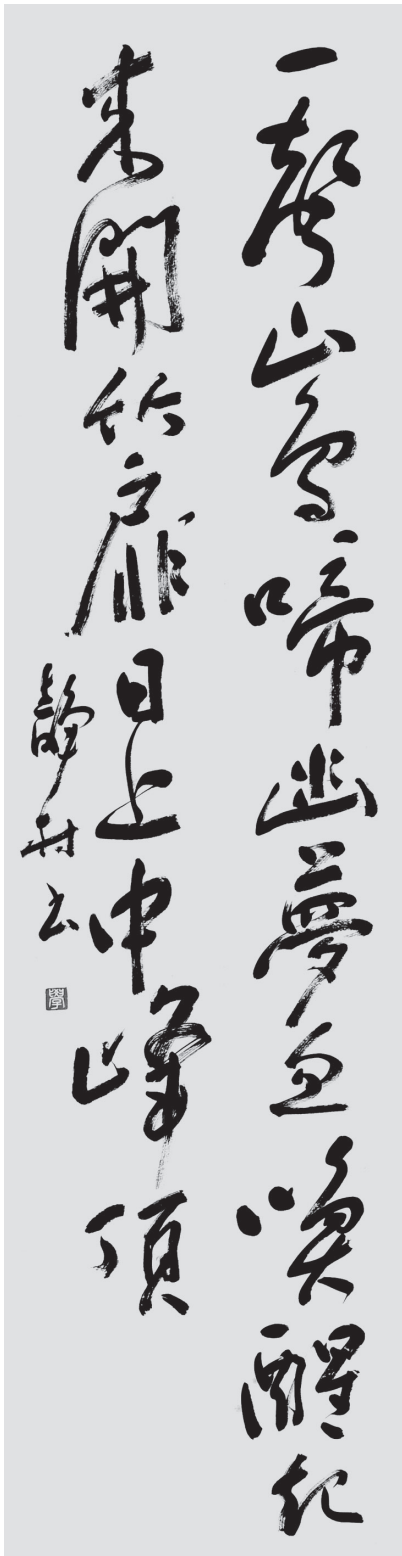 一聲山鳥啼幽夢忽喚醒起
来開竹扉日上中峰頂
靜村書
學